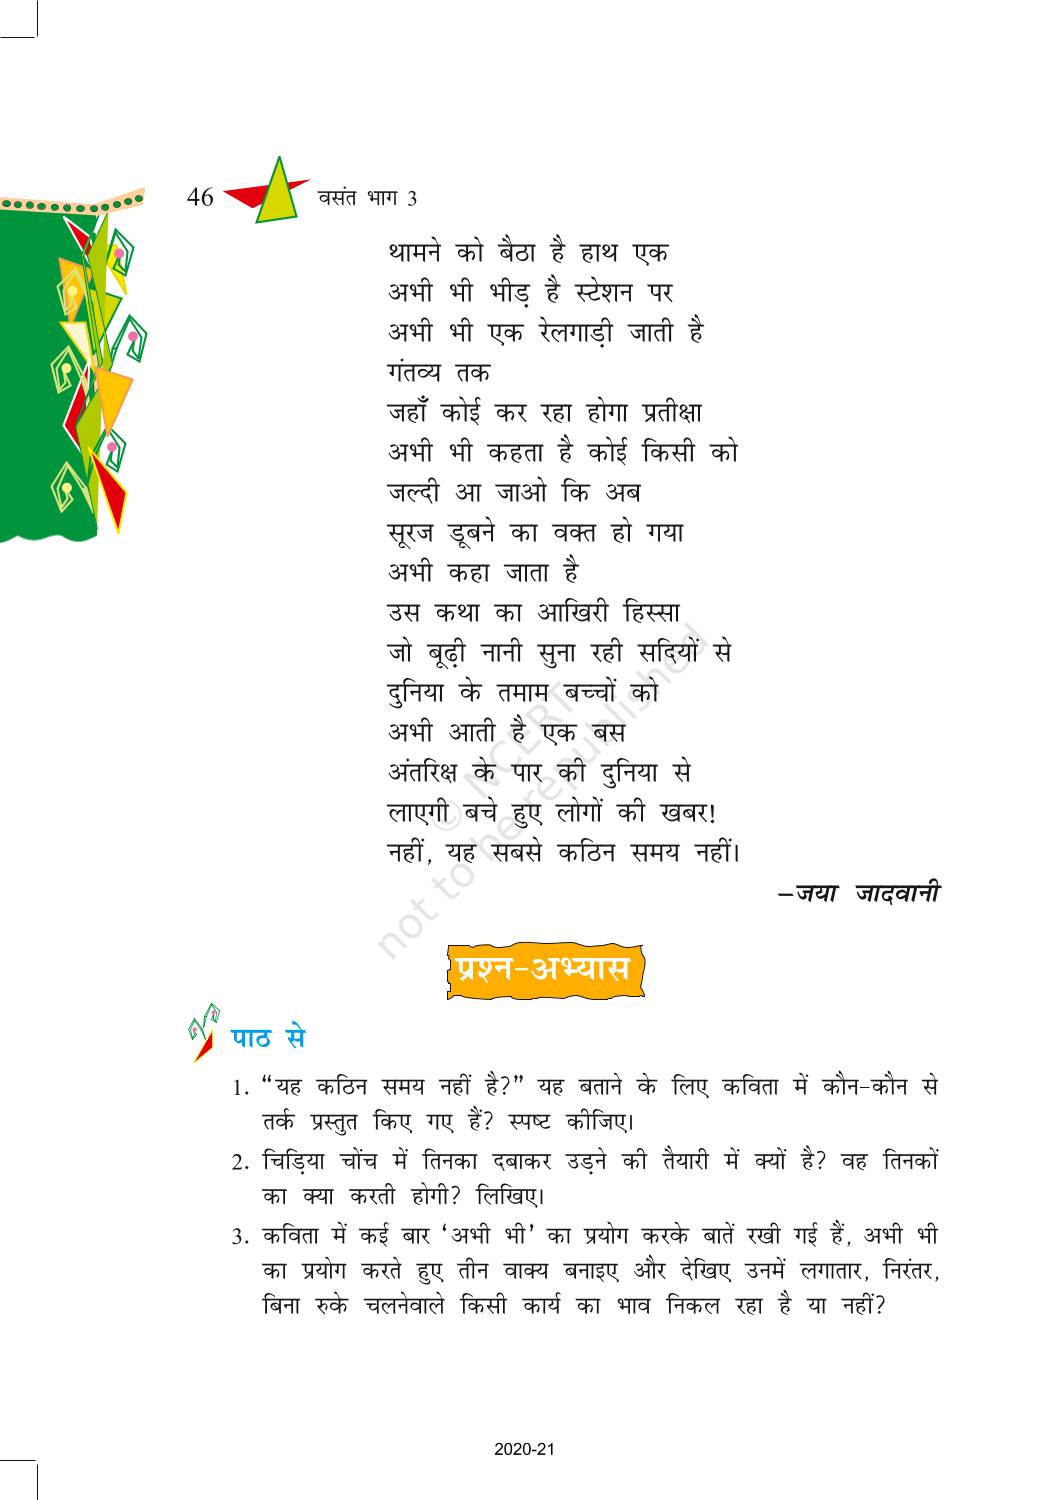 46 वसंत भाग 3
थामने को बैठा है हाथ एक
अभी भी भीड़ है स्टेशन पर
अभी भी एक रेलगाड़ी जाती है
गंतव्य तक
जहाँ कोई कर रहा होगा प्रतीक्षा
अभी भी कहता है कोई किसी को
जल्दी आ जाओ कि अब
सूरज डूबने का वक्त हो गया
अभी कहा जाता है
उस कथा का आखिरी हिस्सा
जो बूढ़ी नानी सुना रही सदियों से
दुनिया के तमाम बच्चों को
अभी आती है एक बस
अंतरिक्ष के पार की दुनिया से
लाएगी बचे हुए लोगों की खबर!
नहीं, यह सबसे कठिन समय नहीं।
–जया जादवानी
© NCERT
not to be republished
प्रश्न-अभ्यास
पाठ से
1. “यह कठिन समय नहीं है?” यह बताने के लिए कविता में कौन-कौन से
तर्क प्रस्तुत किए गए हैं? स्पष्ट कीजिए।
2. चिड़िया चोंच में तिनका दबाकर उड़ने की तैयारी में क्यों है? वह तिनकों
का क्या करती होगी? लिखिए।
3. कविता में कई बार ‘अभी भी’ का प्रयोग करके बातें रखी गई हैं, अभी भी
का प्रयोग करते हुए तीन वाक्य बनाइए और देखिए उनमें लगातार, निरंतर,
बिना रुके चलनेवाले किसी कार्य का भाव निकल रहा है या नहीं?
2020-21